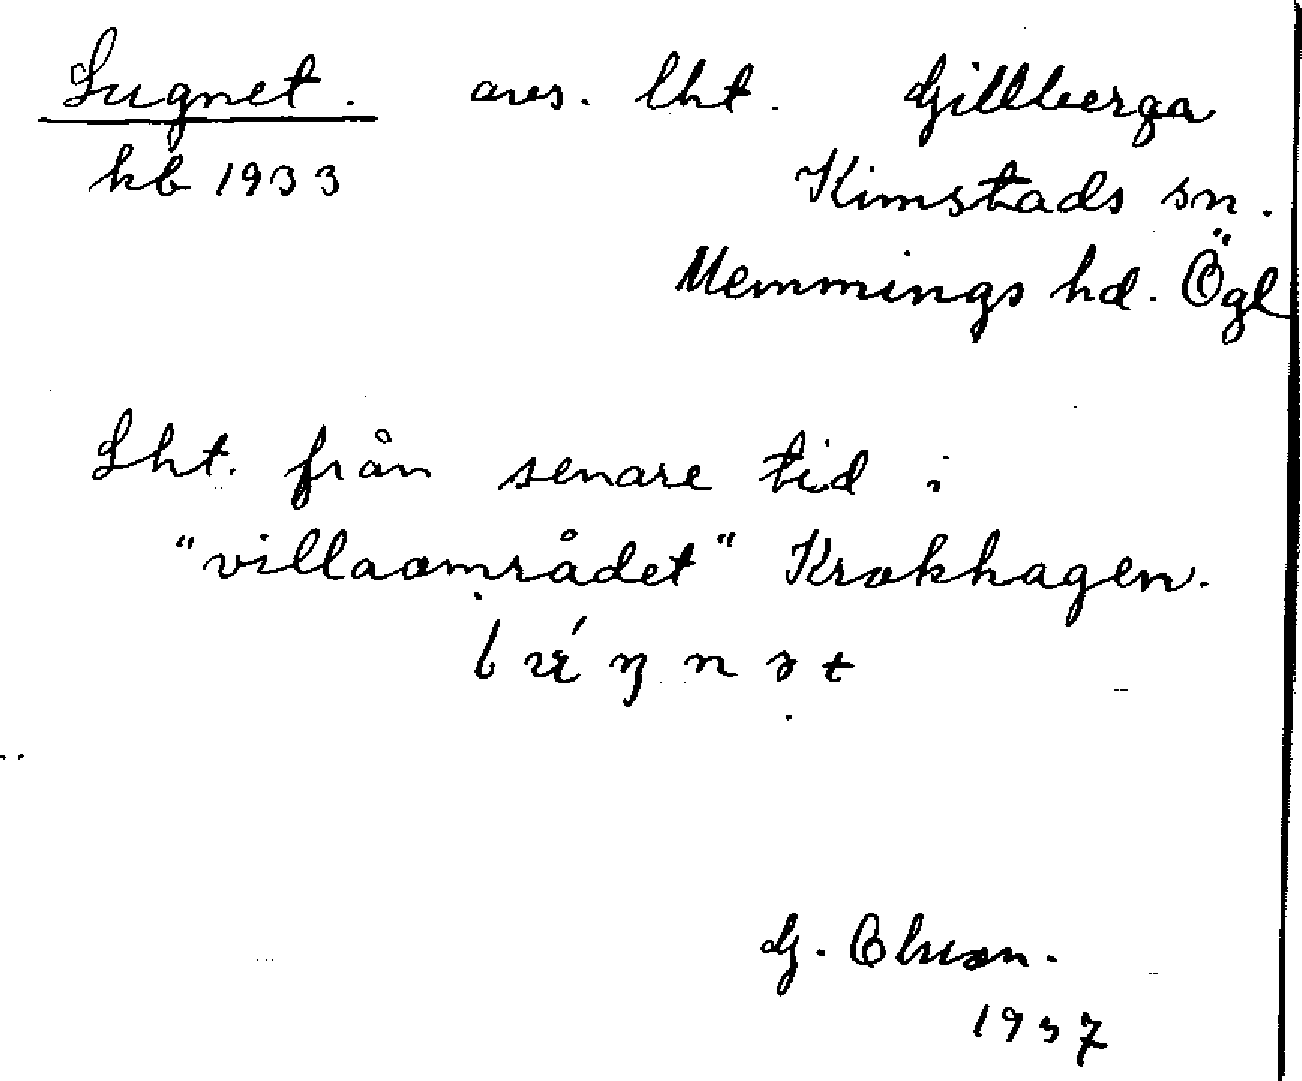 Lugnet. avs. lht. Gillberga
kb 1933 Kimstads sn.
Memmings hd. Ögl
Lht. från senare tid i
"villaområdet" Krokhagen.
G.
1937